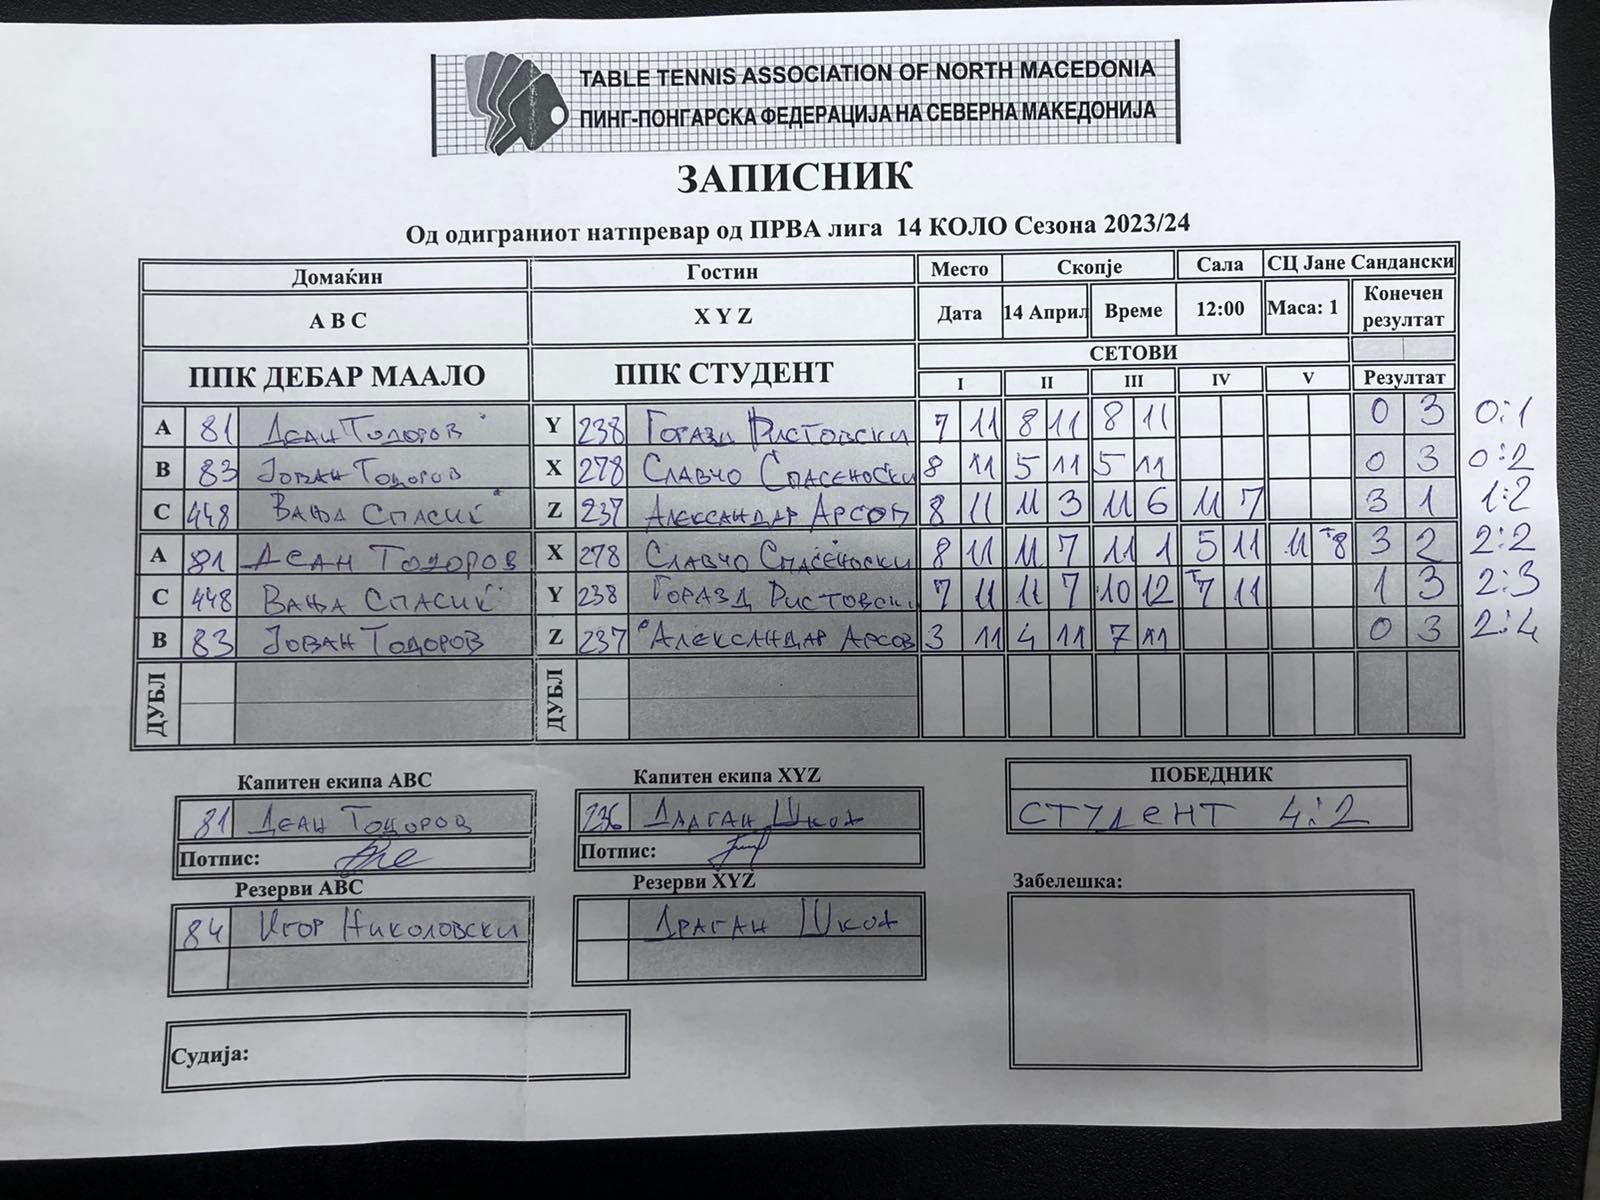 TABLE TENNIS ASSOCIATION OF NORTH MACEDONIA
ПИНГ-ПОНГАРСКА ФЕДЕРАЦИЈА НА СЕВЕРНА МАКЕДОНИЈА
ЗАПИСНИК
Од одиграниот натпревар од ПРВА лига 14 КОЛО Сезона 2023/24
Домаќин Гостин Место Скопје Сала СЦ Јане Сандански
A B C X Y Z Дата 14 Април Време 12:00 Маса: 1 Конечен резултат
ППК ДЕБАР МААЛО ППК СТУДЕНТ СЕТОВИ
I II III IV V Резултат
A 81 Деан Тодоров Y 238 Горазд Ристовски 7 11 8 11 8 11 0 3 0:1
B 83 Јован Тодоров X 278 Славчо Спасеноски 8 11 5 11 5 11 0 3 0:2
C 448 Вања Спасиќ Z 237 Александар Арсов 8 11 11 3 11 6 11 7 3 1 1:2
A 81 Деан Тодоров X 278 Славчо Спасеноски 8 11 11 7 11 1 5 11 11 8 3 2 2:2
C 448 Вања Спасиќ Y 238 Горазд Ристовски 7 11 11 7 10 12 7 11 1 3 2:3
B 83 Јован Тодоров Z 237 Александар Арсов 3 11 4 11 7 11 0 3 2:4
ДУБЛ ДУБЛ
Капитен екипа ABC Капитен екипа XYZ ПОБЕДНИК
81 Деан Тодоров 236 Драган Шкох СТУДЕНТ 4:2
Потпис: Потпис:
Резерви ABC Резерви XYZ Забелешка:
84 Игор Николовски Драган Шкох
Судија: